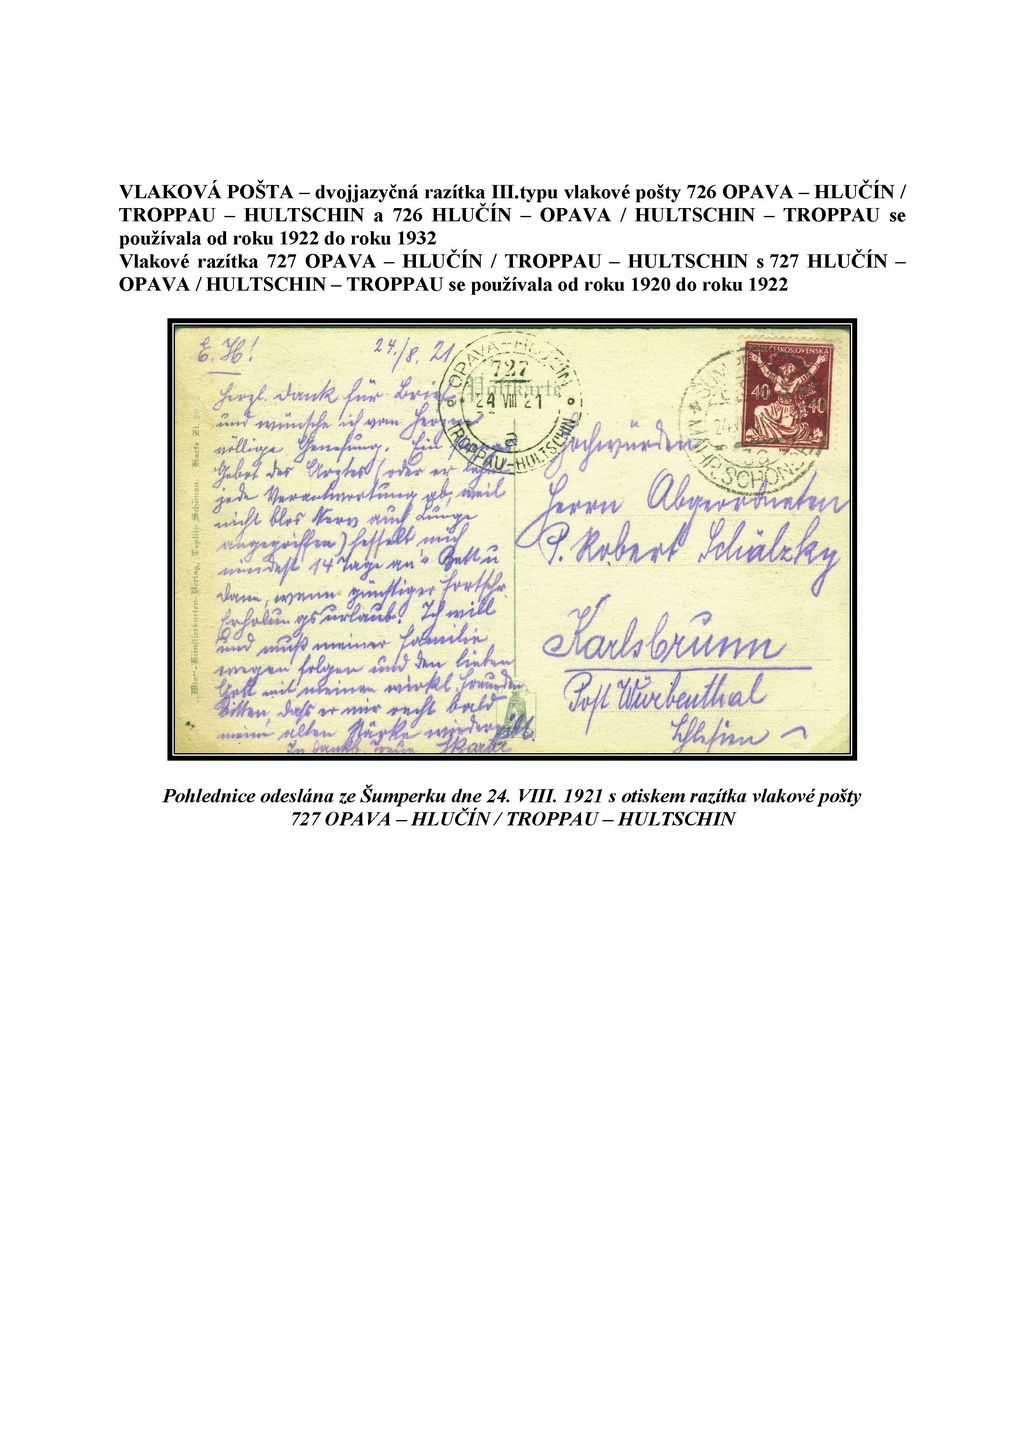 VLAKOVÁ POŠTA – dvojjazyčná razítka III.typu vlakové pošty 726 OPAVA – HLUČÍN /
TROPPAU – HULTSCHIN a 726 HLUČÍN – OPAVA / HULTSCHIN – TROPPAU se
používala od roku 1922 do roku 1932
Vlakové razítka 727 OPAVA – HLUČÍN / TROPPAU – HULTSCHIN s 727 HLUČÍN –
OPAVA / HULTSCHIN – TROPPAU se používala od roku 1920 do roku 1922
24./8. 21
herzl. Dank für Brief
und wünsche ich vom Herrn
völlige Genesung. Ein
Gebot des Arztes (oder er lehnt
jede Verantwortung ab, weil
nicht blos Nerv auch Lunge
angegriffen) fesselt mich
mindest 14 Tage an's Bett u
dann, wenn günstiger Fortschr.
Erholungsurlaub. Ich will
und muß meiner Familie
wegen folgen und den lieben
Gott mit meinen wirkl. Freunden
bitten, daß er mir recht bald
meine alten Stärke wieder
In dankb. Treue
OPAVA–HLUČÍN
727
24 VIII 21
a
TROPPAU–HULTSCHIN
Postkarte
ČESKOSLOVENSKÁ
40 40
MÄHR. SCHÖN
Hochwürden
Herrn Abgeordneten
P. Robert Schälzky
Karlsbrunn
Post Würbenthal
Schlesien
Pohlednice odeslána ze Šumperku dne 24. VIII. 1921 s otiskem razítka vlakové pošty
727 OPAVA – HLUČÍN / TROPPAU – HULTSCHIN